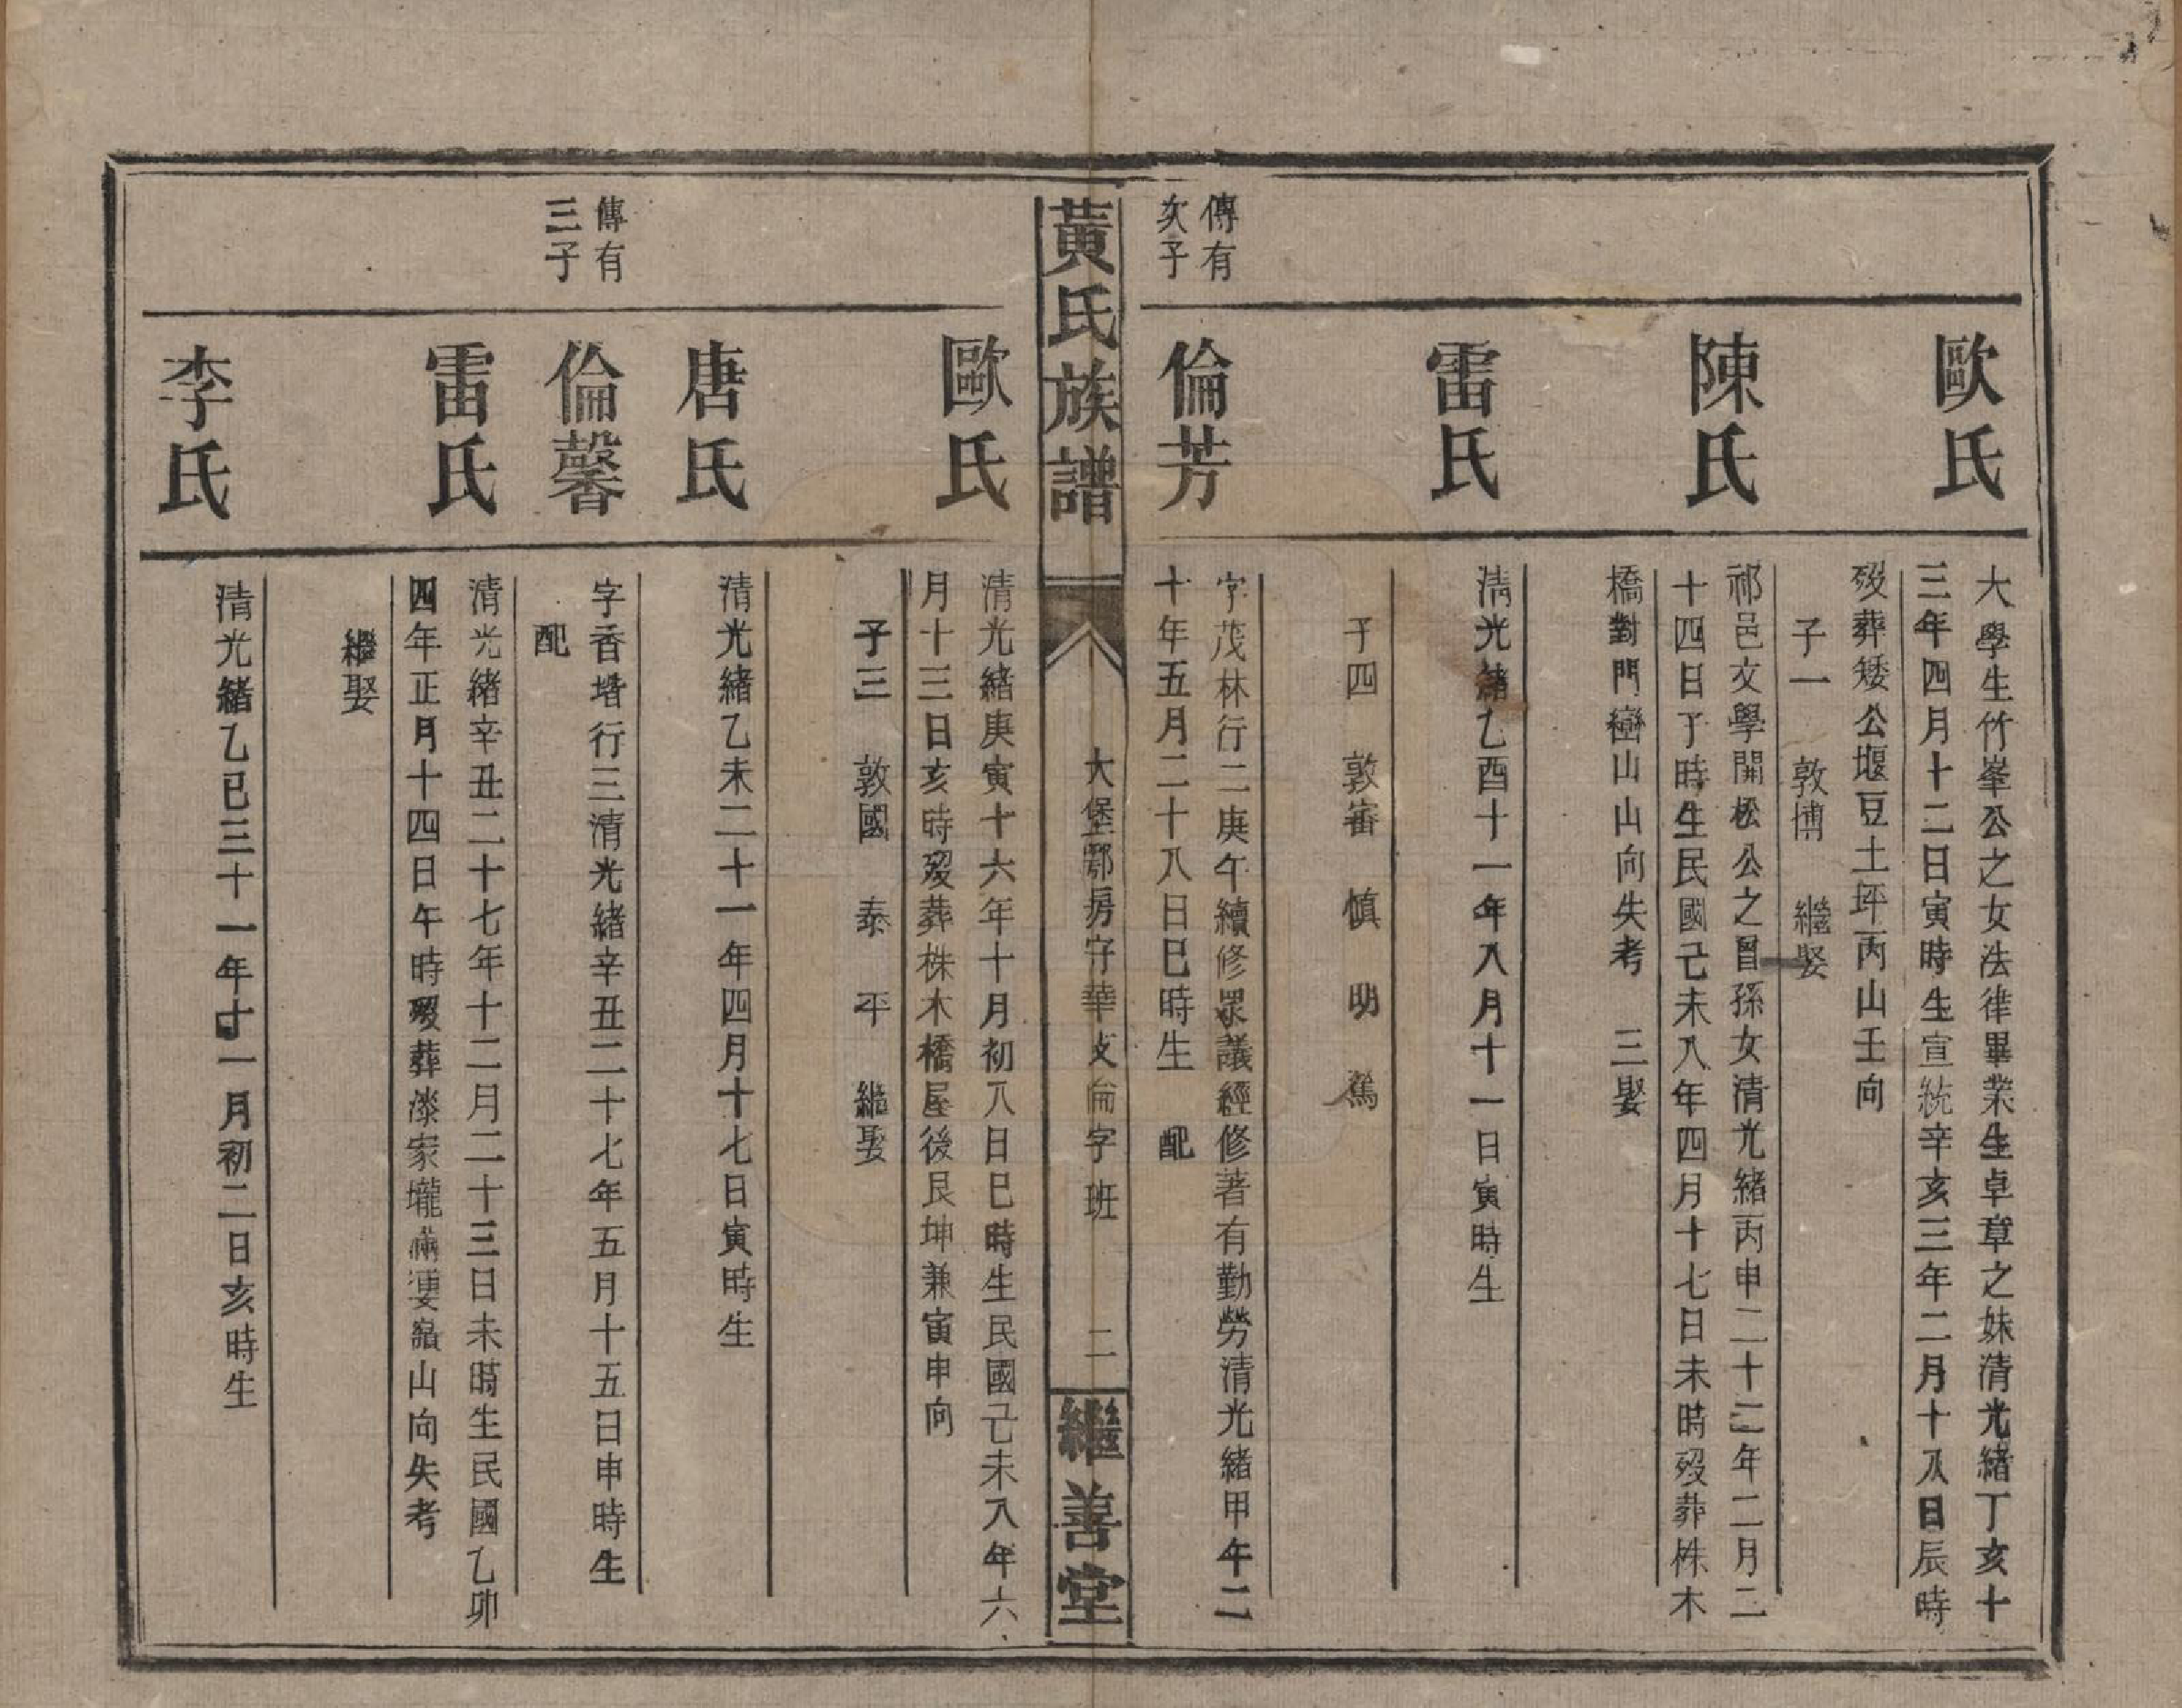 歐氏
大學生竹峯公之女法律畢業生卓章之妹清光緒丁亥十
三年四月十二日寅時生宣統辛亥三年二月十八日辰時
歿葬矮公堰豆土坪丙山壬向
子一 敦博 繼娶
陳氏
祁邑文學開松公之曾孫女清光緒丙申二十二年二月二
十四日子時生民國己未八年四月十七日未時歿葬株木
橋對門巒山山向失考 三娶
雷氏
清光緒乙酉十一年八月十一日寅時生
子四 敦審 慎 明 篤
傳有
次子
倫芳
字茂林行二庚午續修眾議經修著有勤勞清光緒甲午二
十年五月二十八日巳時生 配
黃氏族譜
大堡鄂房守華文倫字班
二
繼善堂
歐氏
清光緒庚寅十六年十月初八日巳時生民國己未八年六
月十三日亥時歿葬株木橋屋後艮坤兼寅申向
子三 敦國 泰 平 繼娶
唐氏
清光緒乙未二十一年四月十七日寅時生
傳有
三子
倫馨
字香堦行三清光緒辛丑二十七年五月十五日申時生
配
雷氏
清光緒辛丑二十七年十二月二十三日未時生民國乙卯
四年正月十四日午時歿葬漆家壠山向失考
繼娶
李氏
清光緒乙巳三十一年十一月初二日亥時生